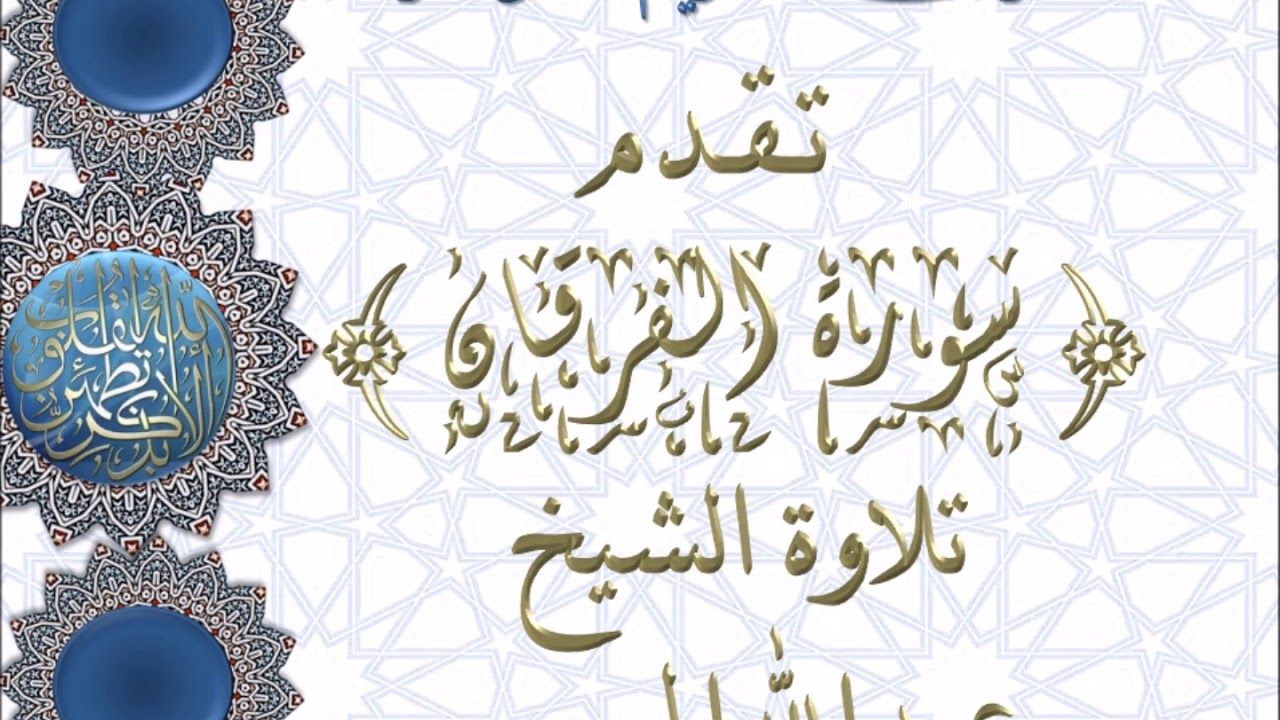 تقدم
﴿ سورة الفرقان ﴾
تلاوة الشيخ
عبد الله
ألا بذكر الله تطمئن القلوب